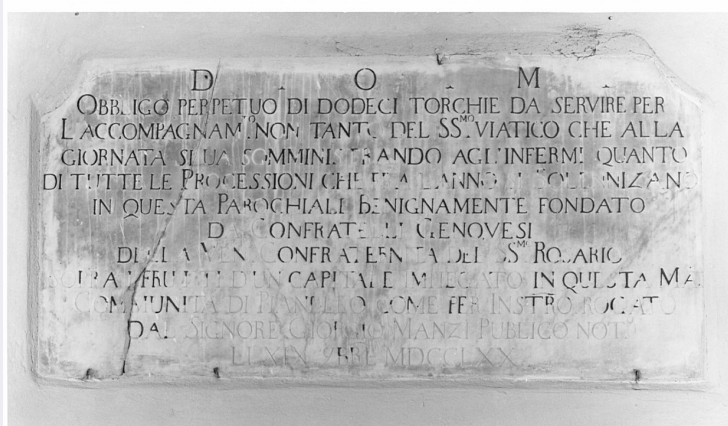 D . O . M .
OBBLIGO PERPETUO DI DODECI TORCHIE DA SERVIRE PER
L'ACCOMPAGNAM.TO NON TANTO DEL SS.MO VIATICO CHE ALLA
GIORNATA SI VA SOMMINISTRANDO AGL'INFERMI QUANTO
DI TUTTE LE PROCESSIONI CHE FRA L'ANNO SI SOLENNIZANO
IN QUESTA PAROCHIALE BENIGNAMENTE FONDATO
DA CONFRATELLI GENOVESI
DELLA VEN. CONFRATERNITA DEL SS.MO ROSARIO
SOPRA I FRUTTI D'UN CAPITALE IMPIEGATO IN QUESTA MA.
COMMUNITA DI PIANELLO COME PER INSTRO ROGATO
DAL SIGNORE GIORGIO MANZI PUBLICO NOT.
LI XIX 9BRE MDCCLXX